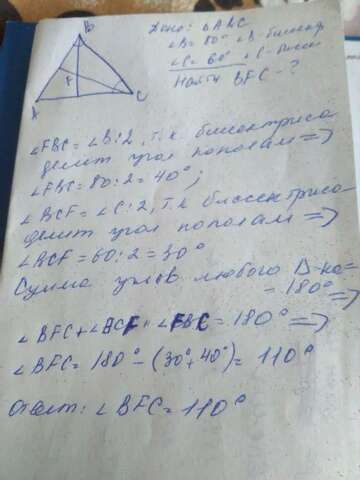 B
F
A
C
Дано: △ABC
∠B = 80° ∠B - биссек
∠C = 60° ∠C - бисек
Найти BFC - ?
∠FBC = ∠B:2, т.к. биссектриса
делит угол пополам =>
∠FBC = 80:2 = 40°;
∠BCF = ∠C:2, т.к биссектриса
делит угол пополам =>
∠BCF = 60:2 = 30°
Сумма углов любого △-ка =
= 180° =>
∠BFC + ∠BCF + ∠FBC = 180° =>
∠BFC = 180° - (30° + 40°) = 110°
Ответ: ∠BFC = 110°